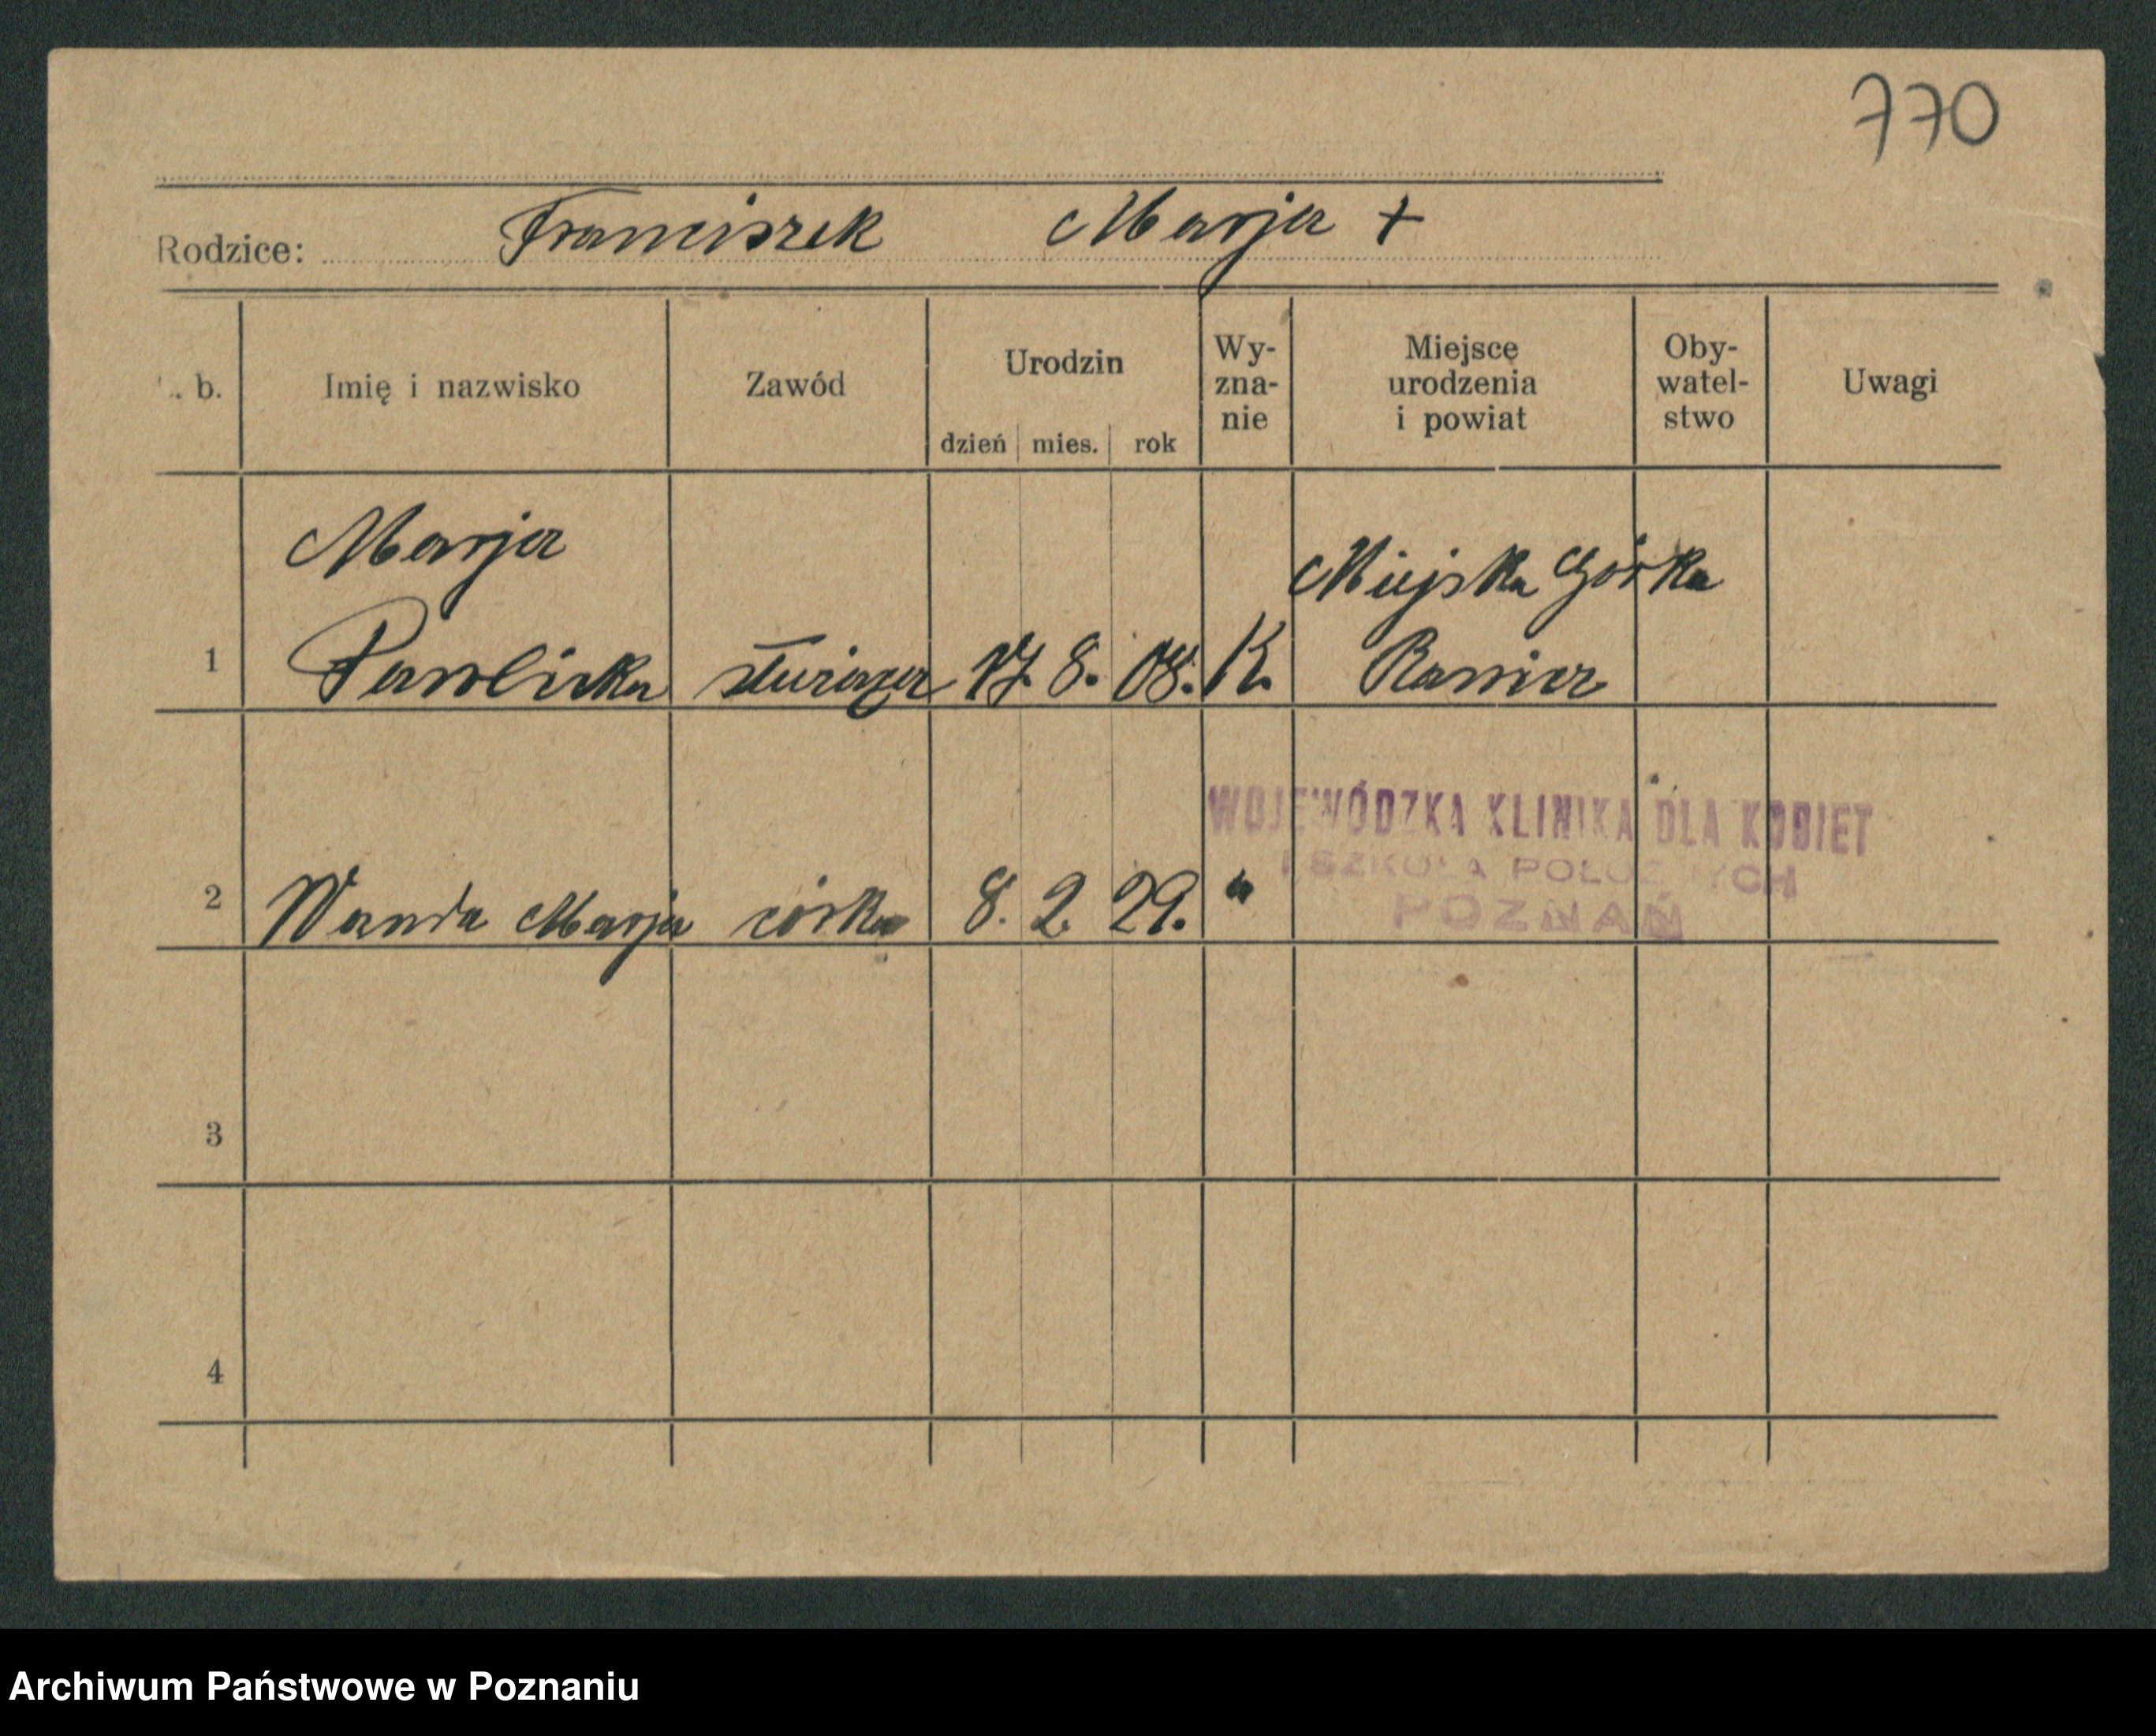 770
Rodzice: Franciszek Marja +
. b. Imię i nazwisko Zawód Urodzin dzień mies. rok Wy-zna-nie Miejsce urodzenia i powiat Oby-watel-stwo Uwagi
Marja
Miejska Górka
1 Pawlicka służąca 17. 8. 08. K. Rawicz
WOJEWÓDZKA KLINIKA DLA KOBIET
I SZKOŁA POŁOŻNYCH
POZNAŃ
2 Wanda Marja córka 8. 2. 29. "
3
4
Archiwum Państwowe w Poznaniu